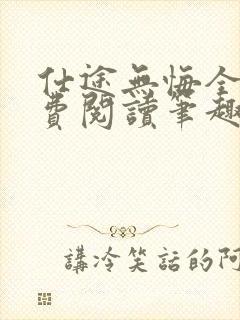 仕途無悔全
費閱讀筆趣
講冷笑話的阿